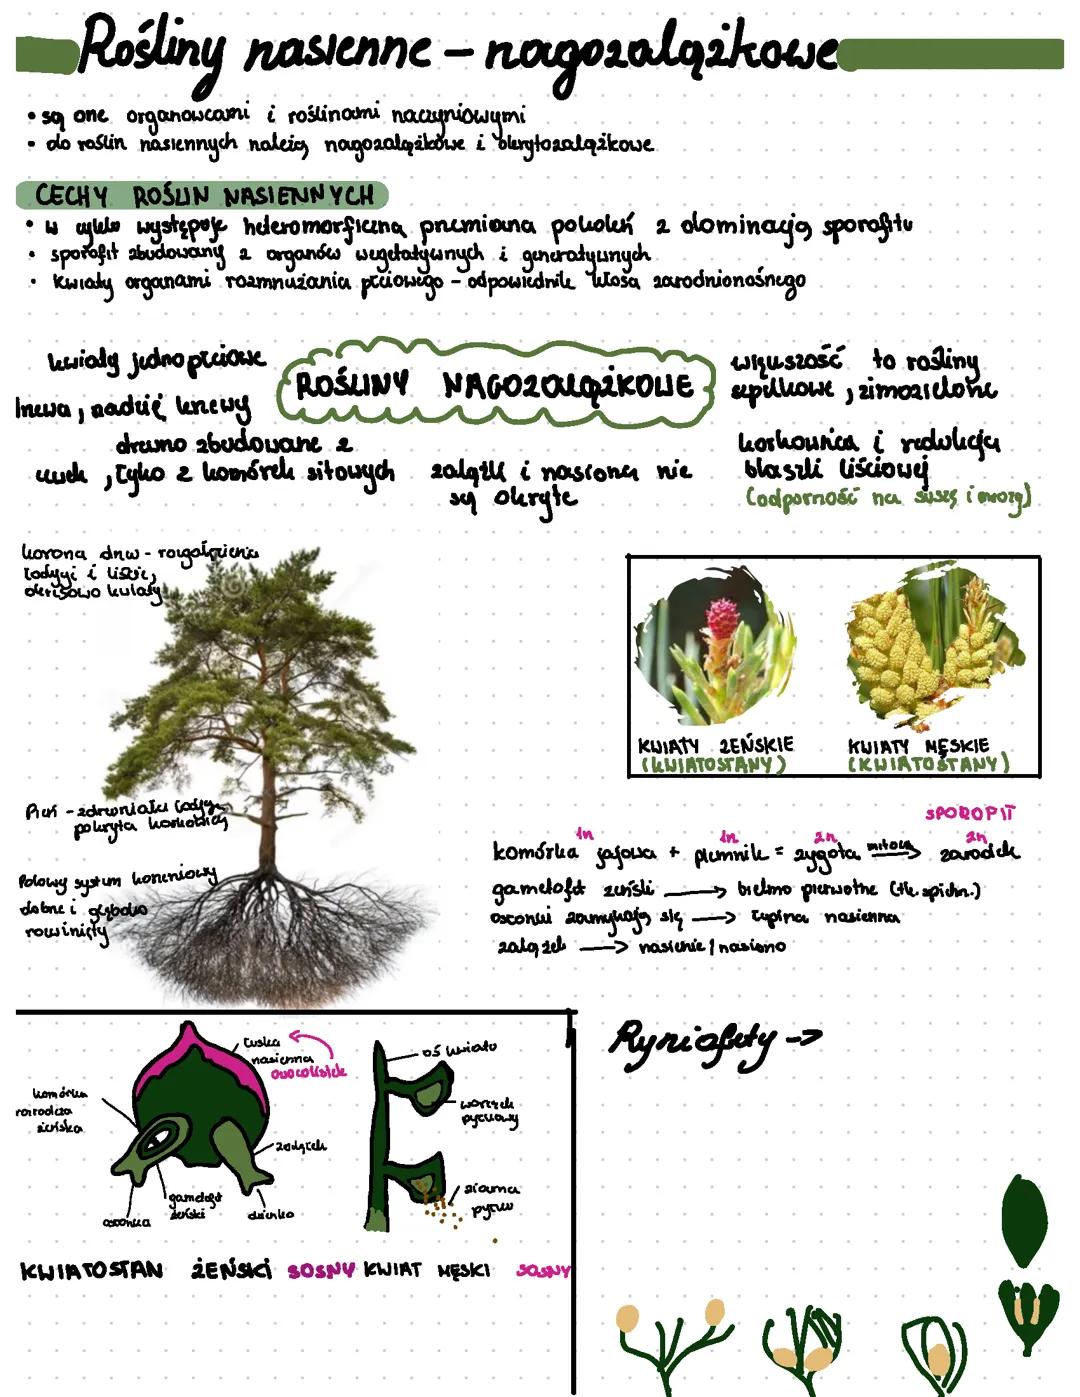 Rośliny nasienne – nagozalążkowe
• są one organowcami i roślinami naczyniowymi
• do roślin nasiennych należą nagozalążkowe i okrytozalążkowe
CECHY ROŚLIN NASIENNYCH
• w cyklu występuje heteromorficzna przemiana pokoleń z dominacją sporofitu
• sporofit zbudowany z organów wegetatywnych i generatywnych
• kwiaty organami rozmnażania płciowego – odpowiednik kłosa zarodnionośnego
kwiaty jednopłciowe
ROŚLINY NAGOZALĄŻKOWE
większość to rośliny
szpilkowe, zimozielone
drzewa, rzadziej krzewy
drewno zbudowane z
cewek, łyko z komórek sitowych
zalążki i nasiona nie
są okryte
korkowica i redukcja
blaszki liściowej
(odporność na suszę i mrozy)
korona drzew - rozgałęzienia
łodygi i liście,
okrisowo kulaty
KWIATY ŻEŃSKIE
(KWIATOSTANY)
KWIATY MĘSKIE
(KWIATOSTANY)
Pień - zdrewniała łodyga
pokryta korkowicą
Palowy system korzeniowy
dobrze i głęboko
rozwinięty
SPOROFIT
1n 1n 2n 2n
komórka jajowa + plemnik = zygota mitoza → zarodek
gametofit żeński → bielmo pierwotne (tk. spichrz.)
osłonki zamykają się → łupina nasienna
zalążek → nasienie / nasiono
łuska
nasienna
owocolistek
komórka
rozrodcza
żeńska
zalążek
osłonka
gametofit
żeński
okienko
oś kwiatu
woreczek
pyłkowy
ziarna
pyłku
KWIATOSTAN ŻEŃSKI SOSNY
KWIAT MĘSKI SOSNY
Ryniofity ->